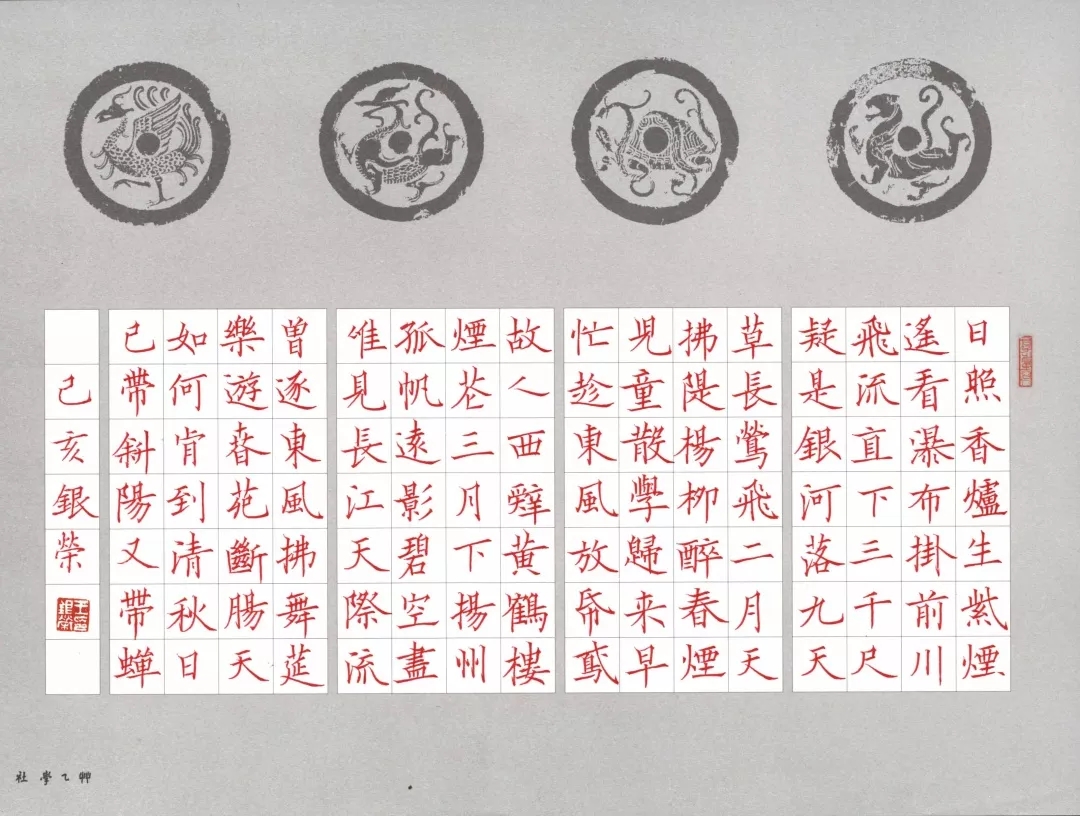 日照香爐生紫煙
遙看瀑布掛前川
飛流直下三千尺
疑是銀河落九天
草長鶯飛二月天
拂隄楊柳醉春煙
兒童散學歸来早
忙趁東風放帋鳶
故人西辭黃鶴樓
煙花三月下揚州
孤帆遠影碧空盡
唯見長江天際流
曾逐東風拂舞筵
樂遊春苑斷腸天
如何肯到清秋日
已帶斜陽又帶蟬
己亥銀榮
艸乙學社